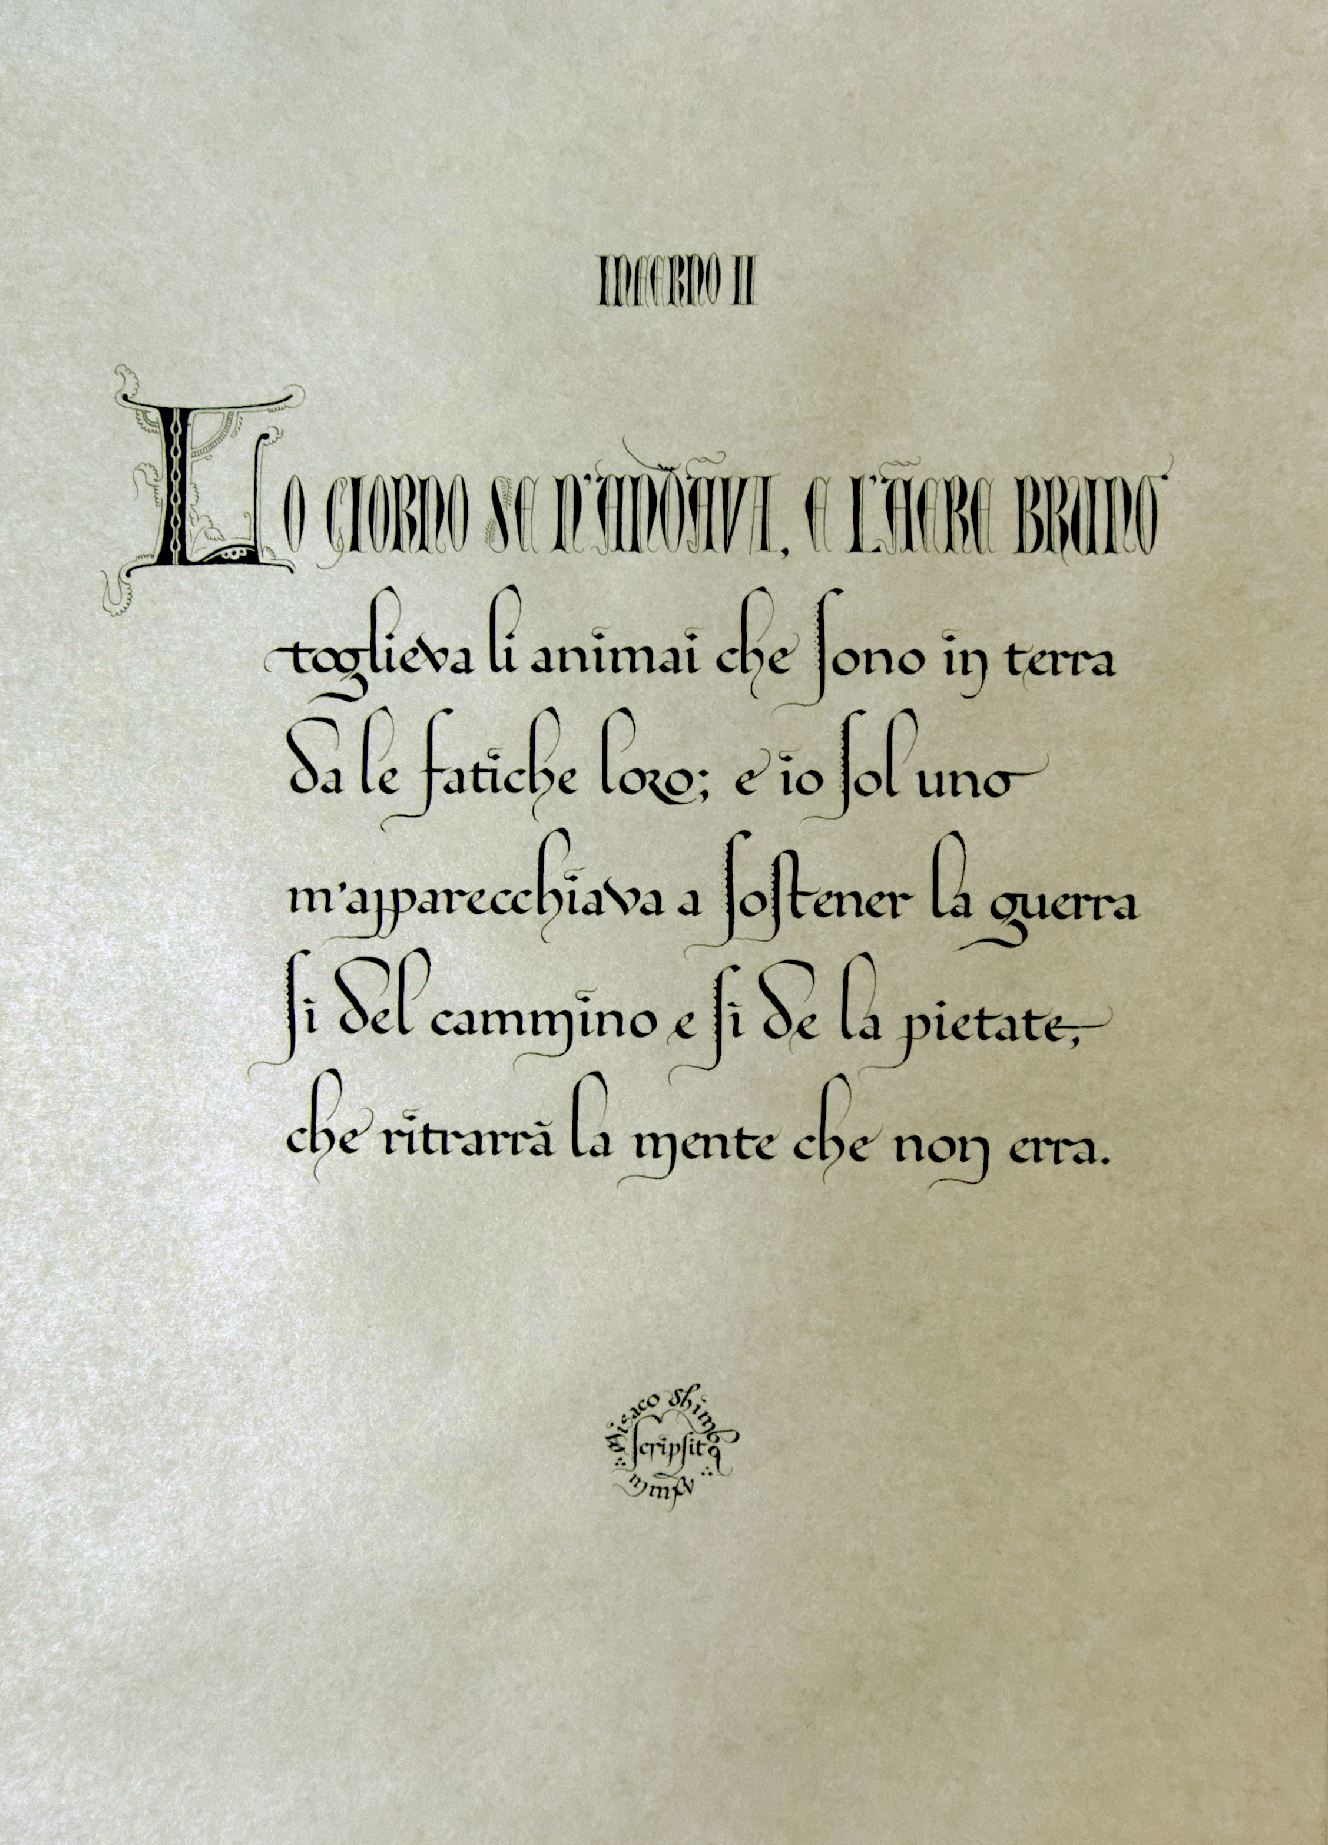 INFERNO II
LO GIORNO SE N'ANDAVA, E L'AERE BRUNO
toglieva li animai che ſono in terra
da le fatiche loro; e io ſol uno
m'apparecchiava a ſoſtener la guerra
ſi del cammino e ſi de la pietate,
che ritrarrà la mente che non erra.
Misaco
ſcripſit
mmxv